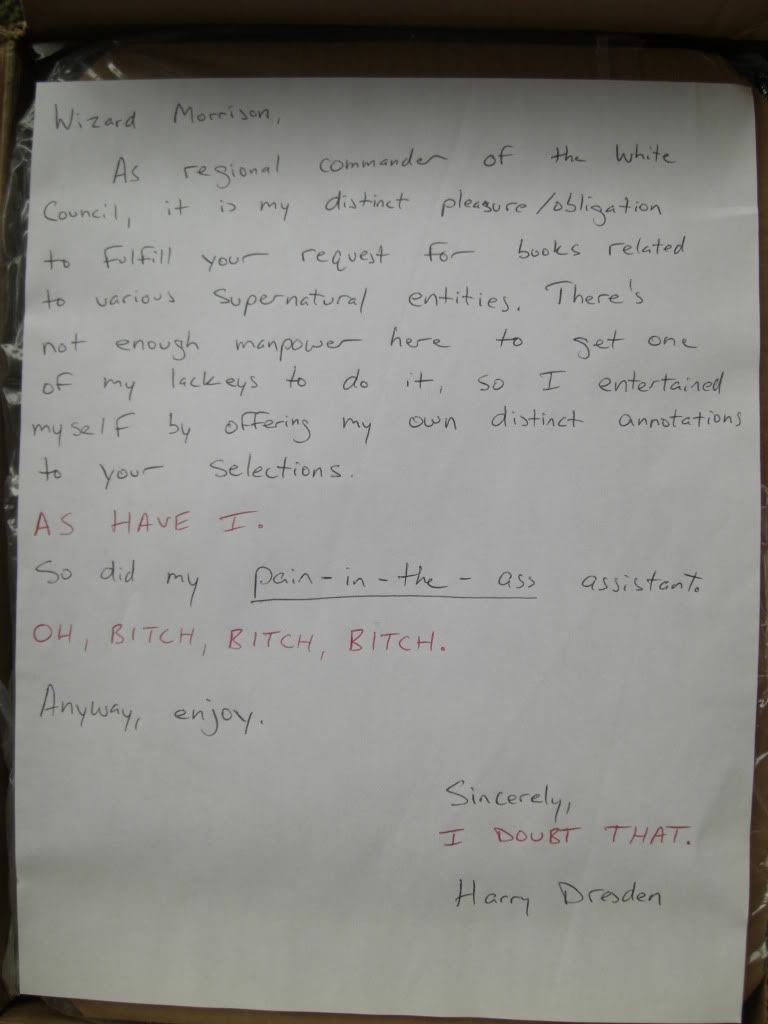 Wizard Morrison,
As regional commander of the White
Council, it is my distinct pleasure/obligation
to fulfill your request for books related
to various supernatural entities. There's
not enough manpower here to get one
of my lackeys to do it, so I entertained
myself by offering my own distinct annotations
to your selections.
AS HAVE I.
So did my pain-in-the-ass assistant.
OH, BITCH, BITCH, BITCH.
Anyway, enjoy.
Sincerely,
I DOUBT THAT.
Harry Dresden